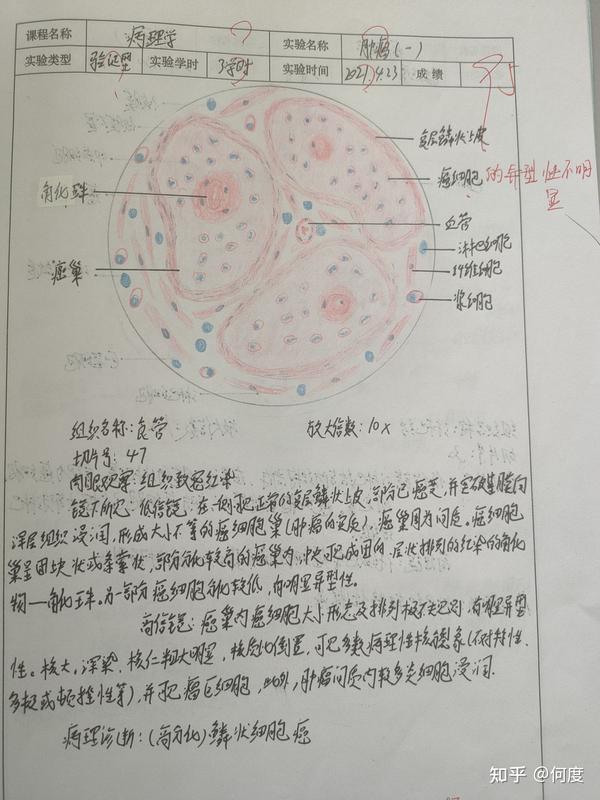 课程名称 病理学 实验名称 肿瘤(一)
实验类型 验证型 实验学时 3学时 实验时间 2021.4.23 成绩
复层鳞状上皮
癌细胞 的异型性不明显
角化珠
血管
淋巴细胞
纤维细胞
癌巢
浆细胞
组织名称:食管 放大倍数:10×
切片号:47
肉眼观察:组织致密红染
镜下所见:低倍镜:在一侧可见正常的复层鳞状上皮,部分已癌变,并突破基膜向
深层组织浸润,形成大小不等的癌细胞巢(肿瘤的实质),癌巢周为间质。癌细胞
巢呈团块状或条索状,部分分化较高的癌巢内,中央可见成团的、层状排列的红染的角化
物—角化珠。另一部分癌细胞分化较低,有明显异型性。
高倍镜:癌巢内癌细胞大小形态及排列极不规则,有明显异型
性。核大,深染,核仁粗大明显,核质比倒置,可见多数病理性核分裂象(不对称性、
多极或顿挫性等),并可见癌巨细胞,此外,肿瘤间质内较多炎细胞浸润.
病理诊断:(高分化)鳞状细胞癌
知乎 @何度